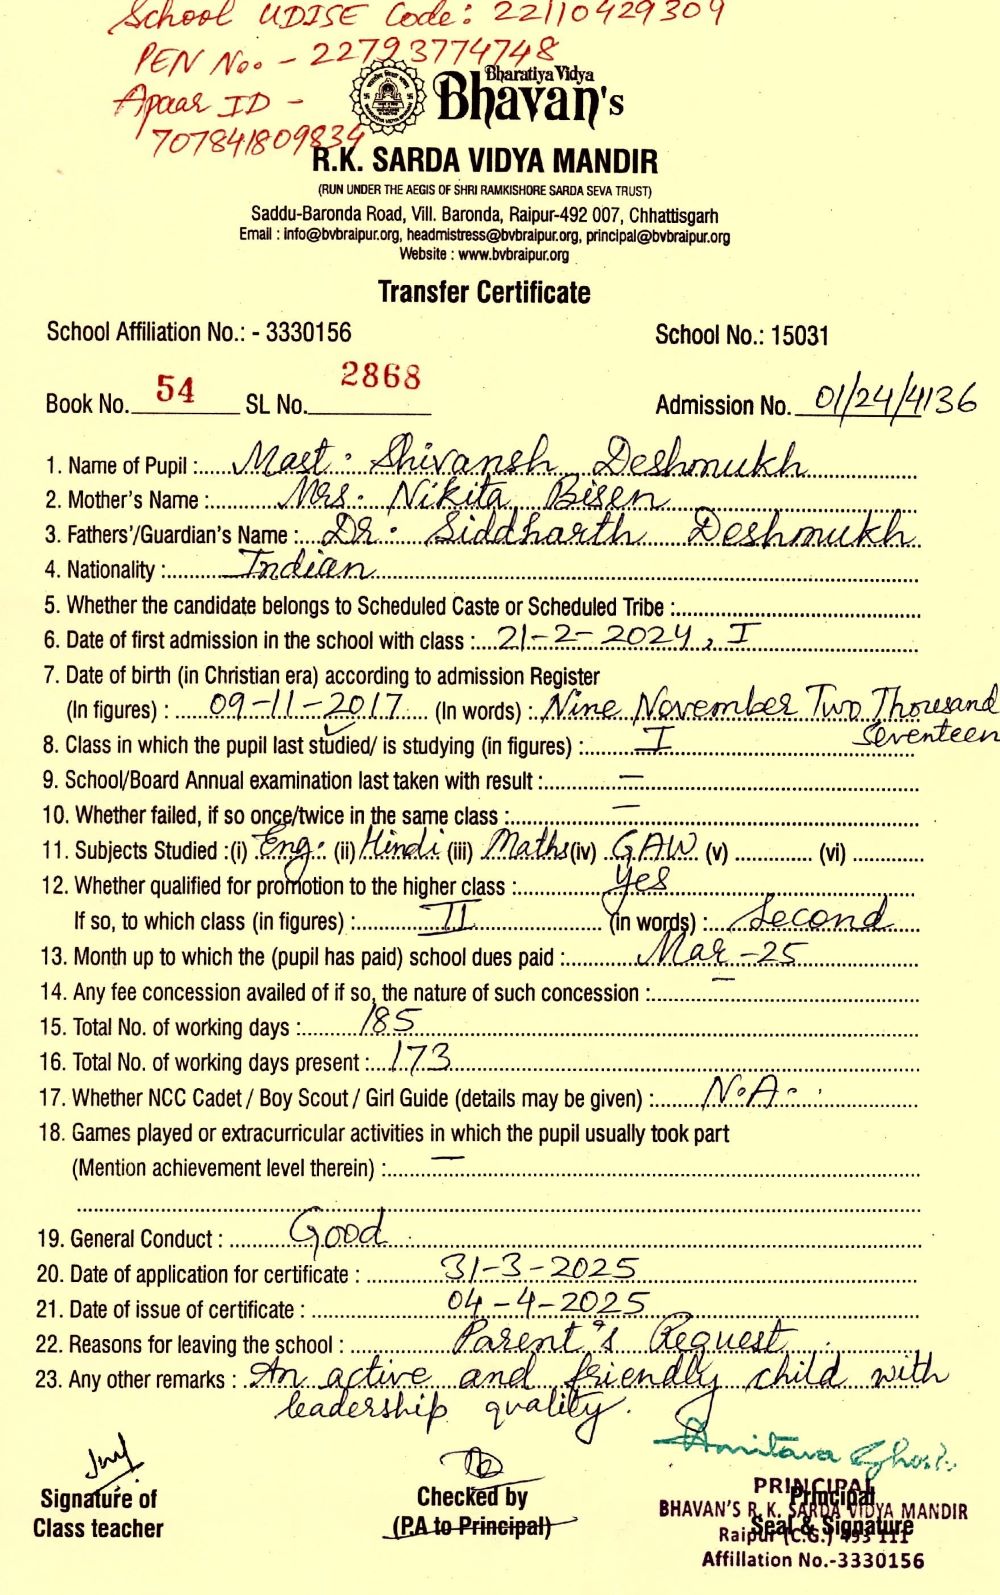 School UDISE Code: 22110429309
PEN No. - 22793774748
Apaar ID -
707841809834
Bharatiya Vidya
Bhavan's
R.K. SARDA VIDYA MANDIR
(RUN UNDER THE AEGIS OF SHRI RAMKISHORE SARDA SEVA TRUST)
Saddu-Baronda Road, Vill. Baronda, Raipur-492 007, Chhattisgarh
Email : info@bvbraipur.org, headmistress@bvbraipur.org, principal@bvbraipur.org
Website : www.bvbraipur.org
Transfer Certificate
School Affiliation No.: - 3330156 School No.: 15031
Book No. 54 SL No. 2868 Admission No. 01/24/4136
1. Name of Pupil : Mast. Shivansh Deshmukh
2. Mother's Name : Mrs. Nikita Bisen
3. Fathers'/Guardian's Name : Dr. Siddharth Deshmukh
4. Nationality : Indian
5. Whether the candidate belongs to Scheduled Caste or Scheduled Tribe :
6. Date of first admission in the school with class : 21-2-2024, I
7. Date of birth (in Christian era) according to admission Register
(In figures) : 09-11-2017 (In words) : Nine November Two Thousand
Seventeen
8. Class in which the pupil last studied/ is studying (in figures) : I
9. School/Board Annual examination last taken with result : —
10. Whether failed, if so once/twice in the same class : —
11. Subjects Studied :(i) Eng. (ii) Hindi (iii) Maths (iv) GAW (v) (vi)
12. Whether qualified for promotion to the higher class : Yes
If so, to which class (in figures) : II (in words) : Second
13. Month up to which the (pupil has paid) school dues paid : Mar-25
14. Any fee concession availed of if so, the nature of such concession : —
15. Total No. of working days : 185
16. Total No. of working days present : 173
17. Whether NCC Cadet / Boy Scout / Girl Guide (details may be given) : N.A.
18. Games played or extracurricular activities in which the pupil usually took part
(Mention achievement level therein) : —
19. General Conduct : Good
20. Date of application for certificate : 31-3-2025
21. Date of issue of certificate : 04-4-2025
22. Reasons for leaving the school : Parent's Request
23. Any other remarks : An active and friendly child with
leadership quality.
Amitava Ghosh
Signature of
Class teacher
Checked by
(PA to Principal)
Principal
Seal & Signature
PRINCIPAL
BHAVAN'S R. K. SARDA VIDYA MANDIR
Raipur (C.G.) 493 111
Affiliation No.-3330156